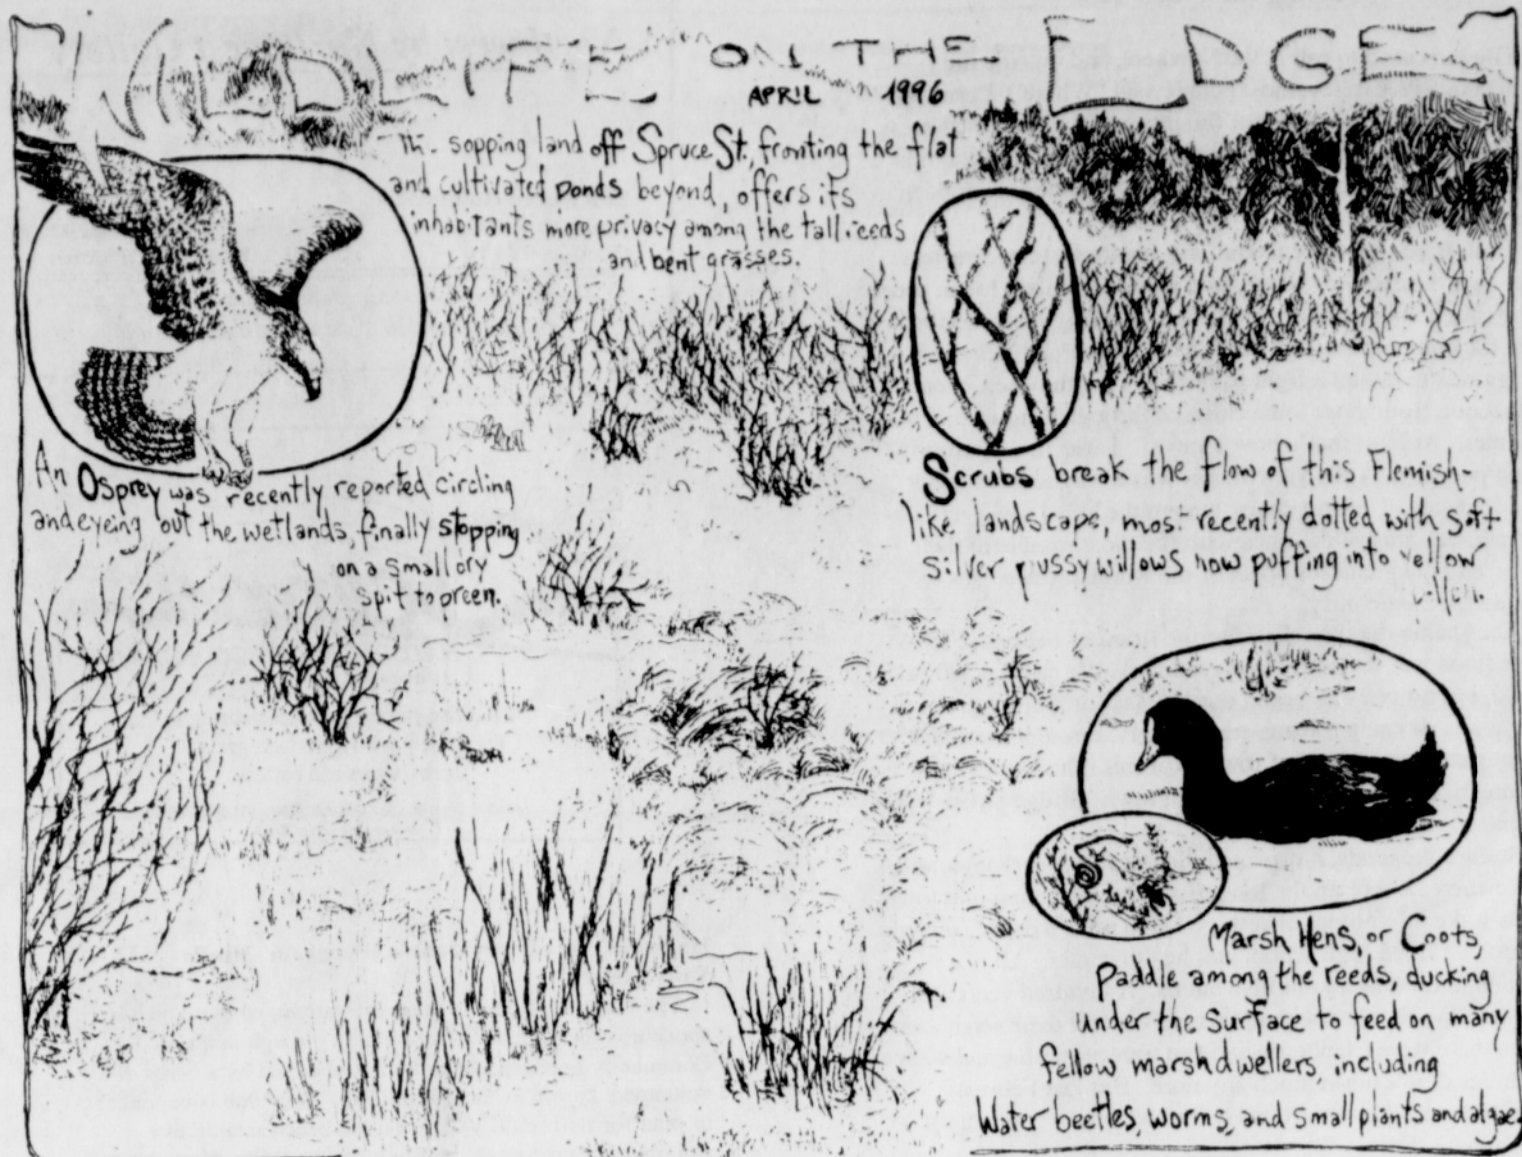 WILDLIFE ON THE EDGE
APRIL 1996
sopping land off Spruce St., fronting the flat
and cultivated ponds beyond, offers its
inhabitants more privacy among the tall reeds
and bent grasses.
An Osprey was recently reported circling
and eyeing out the wetlands, finally stopping
on a small dry
spit to preen.
Scrubs break the flow of this Flemish-
like landscape, most recently dotted with soft
silver pussywillows now puffing into yellow
Marsh Hens, or Coots,
paddle among the reeds, ducking
under the surface to feed on many
fellow marshdwellers, including
Water beetles, worms, and small plants and algae.